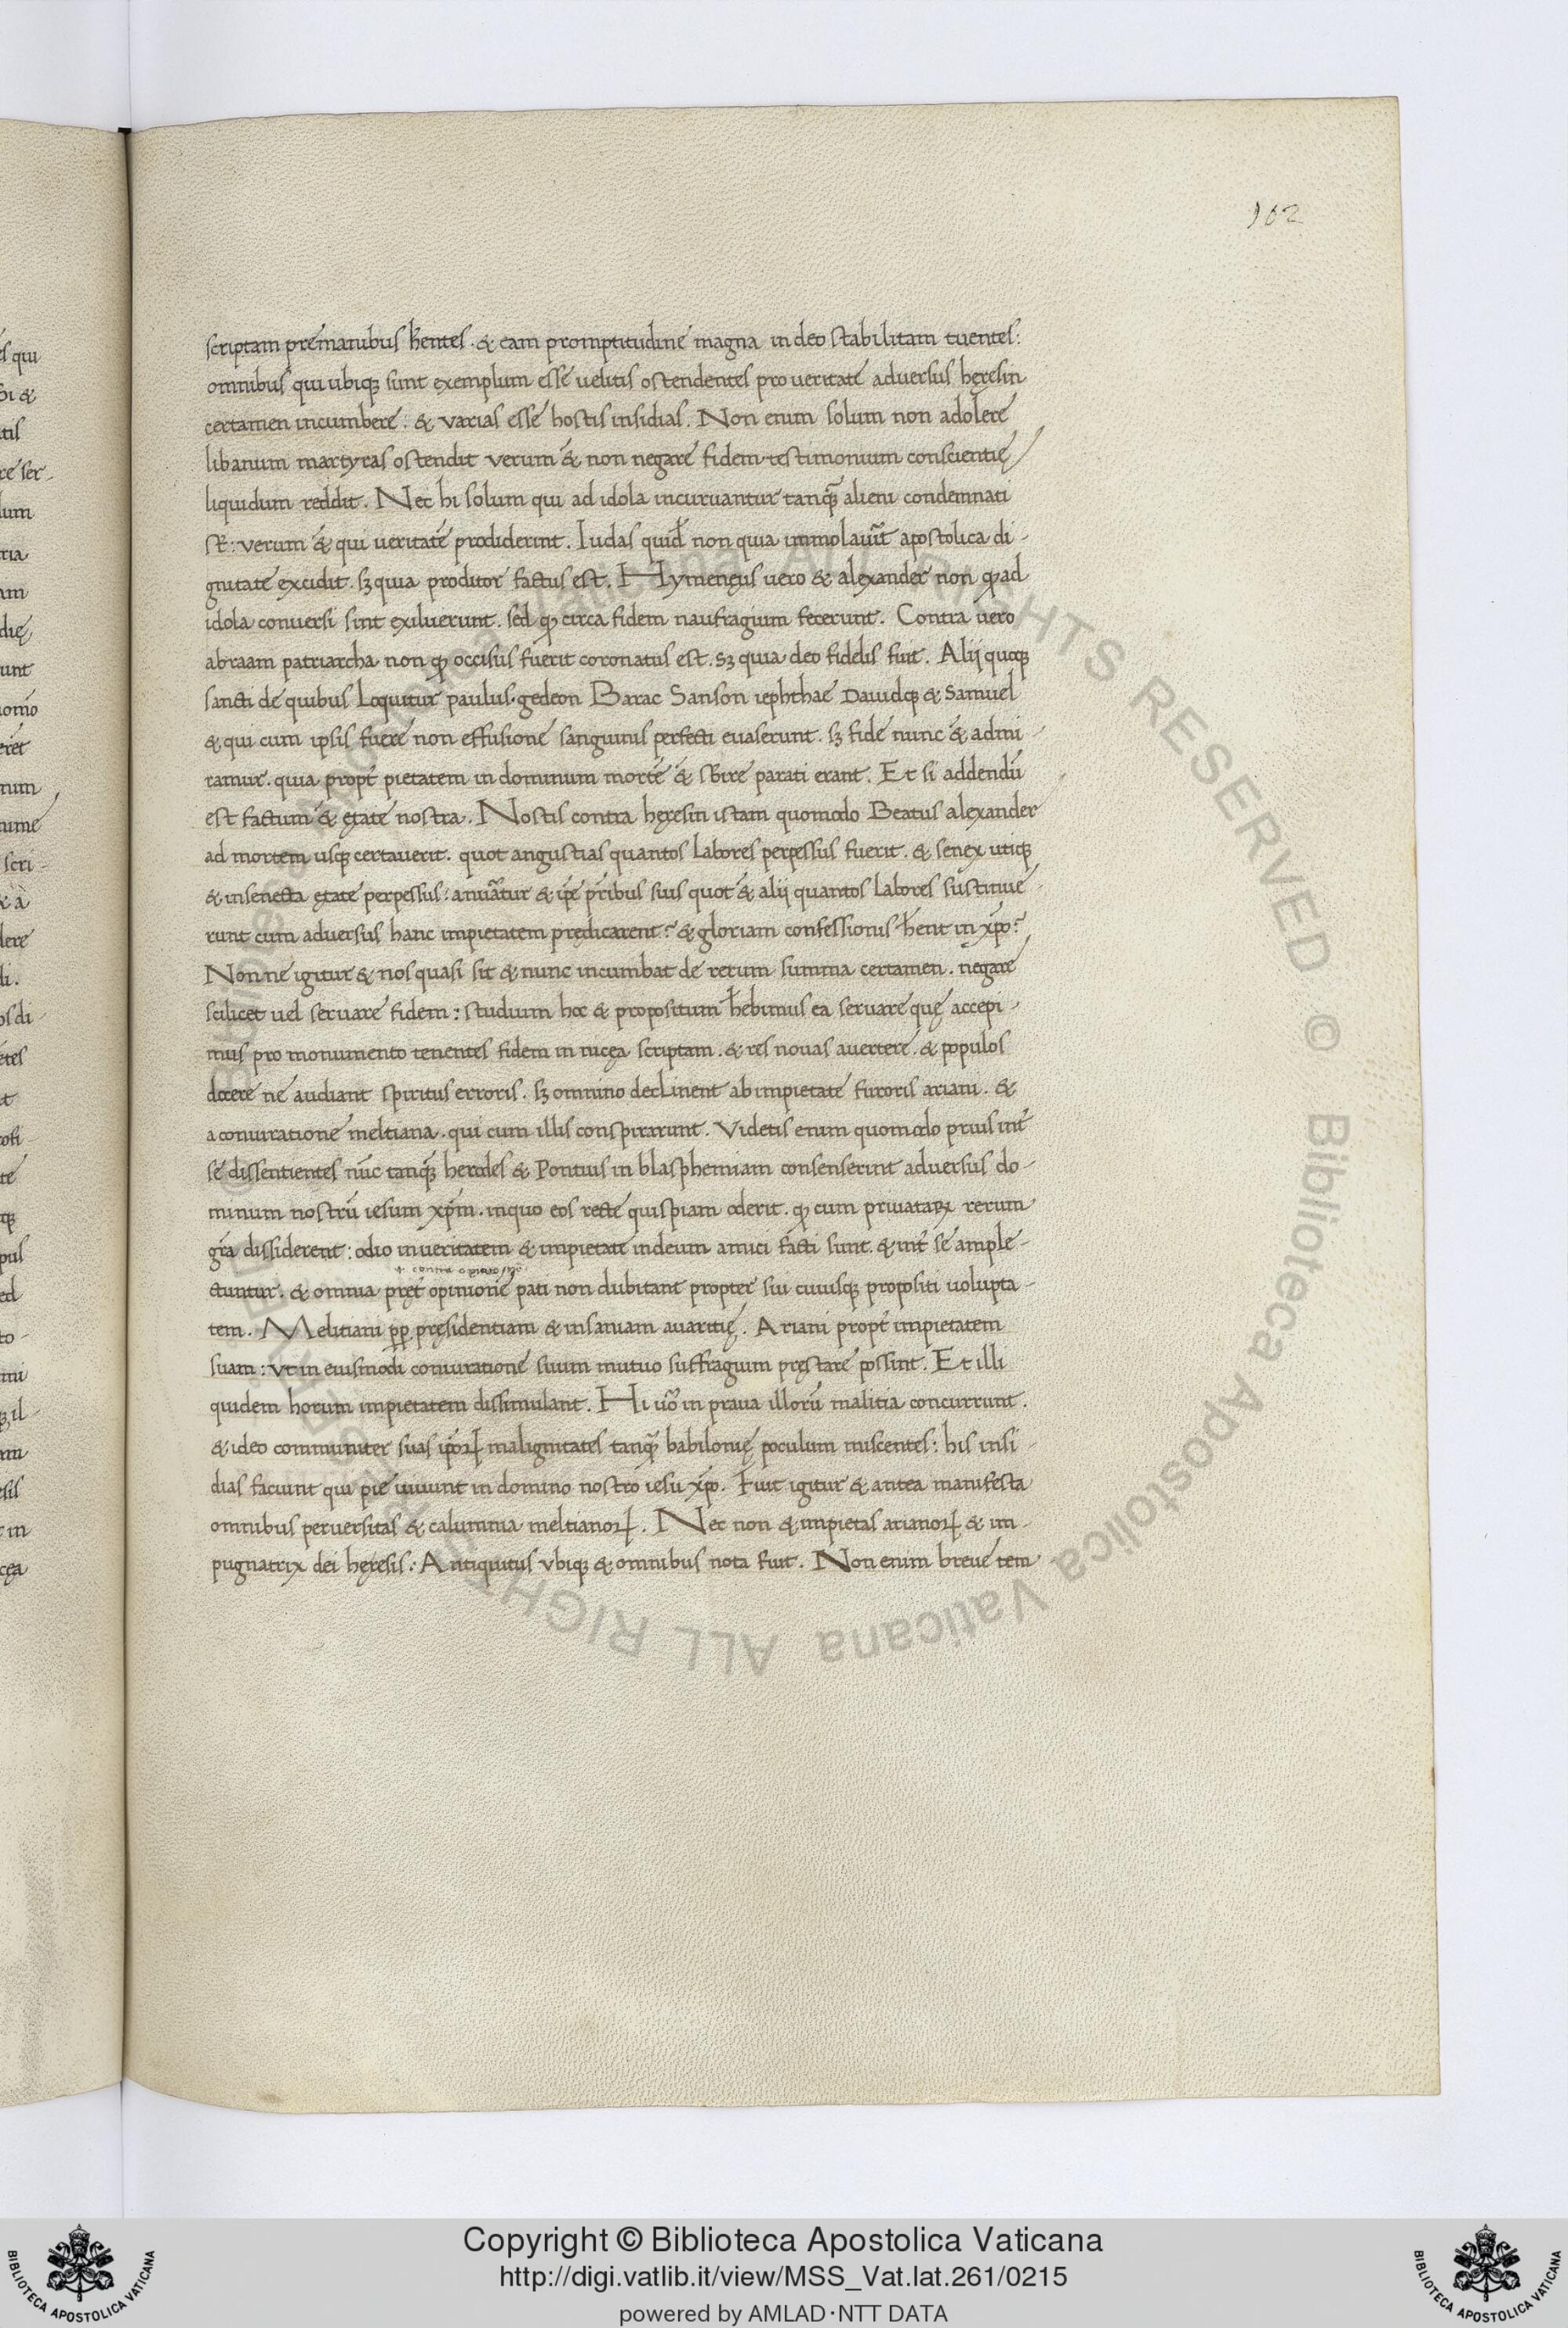 102
scriptam pre manibus hentes · & eam promptitudine magna in deo stabilitam tuentes:
omnibus qui ubiq; sunt exemplum esse uelitis ostendentes pro ueritate aduersus heresin
certamen incumbere: & varias esse hostis insidias. Non enim solum non adolere
libanum martyras ostendit verum & non negare fidem testimonium conscientię
liquidum reddit. Nec hi solum qui ad idola incuruantur tanq̃ alieni condemnati
st̃: verum & qui ueritatē prodiderint. Iudas quid̃ non quia immolauit̃ apostolica di-
gnitate excidit. sʒ quia proditor factus est. Hymenęus uero & alexander non ꝙ ad
idola conuersi sint exiluerunt. sed ꝙ circa fidem naufragium fecerunt. Contra uero
abraam patriarcha non ꝙ occisus fuerit coronatus est. sʒ quia deo fidelis fuit. Alij quoq;
sancti de quibus Loquitur paulus. gedeon Barac Sanson iephthae Dauidq; & Samuel
& qui cum ipsis fuere non effusione sanguinis perfecti euaserunt. sʒ fide nunc & admi-
ramur. quia propt̃ pietatem in dominum mortē & sbire parati erant. Et si addendũ
est factum & ętate nostra. Nostis contra hęresin istam quomodo Beatus alexander
ad mortem usq; certauerit. quot angustias quantos Labores perpessus fuerit. & senex utiq;
& in senecta ętate perpessus: & ip̃e pr̃ibus suis quot & alij quantos labores sustinue-
runt cum aduersus hanc impietatem prędicarent? & gloriam confessionis hent in xp̃o?
Non ne igitur & nos quasi sit & nunc incumbat de rerum summa certamen. negare
scilicet uel seruare fidem: studium hoc & propositum hebimus ea seruare quę accepi-
mus pro monumento tenentes fidem in nicęa scriptam. & res nouas auertere. & populos
docere ne audiant spiritus erroris. sʒ omnino decLinent ab impietate furoris ariani. &
a coniuratione meltiana. qui cum illis conspirarunt. Videtis enim quomodo prius int̃
se dissentientes nũc tanq̃ herodes & Pontius in blasphemiam consenserint aduersus do-
minum nostrũ iesum xp̃m. in quo eos recte quispiam oderit. ꝙ cum priuataꝝ rerum
gr̃a dissiderent: odio in ueritatem & impietate in deum amici facti sunt. & int̃ se ample-
ctuntur. & omnia pręt̃ opinionē pati non dubitant propter sui cuiusq; propositi uolupta-
tem. Melitiani pp̃ pręsidentiam & insaniam auaritię. Ariani propt̃ impietatem
suam: Vt in eiusmodi coniuratione suum mutuo suffragium pręstare possint. Et illi
quidem horum impietatem dissimulant. Hi uõ in praua illorũ malitia concurrunt.
& ideo communiter suas ip̃oꝝ malignitates tanq̃ babilonię poculum miscentes: his insi-
dias faciunt qui pie uiuunt in domino nostro iesu xp̃o. Fuit igitur & antea manifesta
omnibus peruersitas & calumnia meltianoꝝ. Nec non & impietas arianoꝝ & im-
pugnatrix dei hęresis: Antiquitus Vbiq; & omnibus nota fuit. Non enim breue tem
Copyright © Biblioteca Apostolica Vaticana
http://digi.vatlib.it/view/MSS_Vat.lat.261/0215
powered by AMLAD·NTT DATA